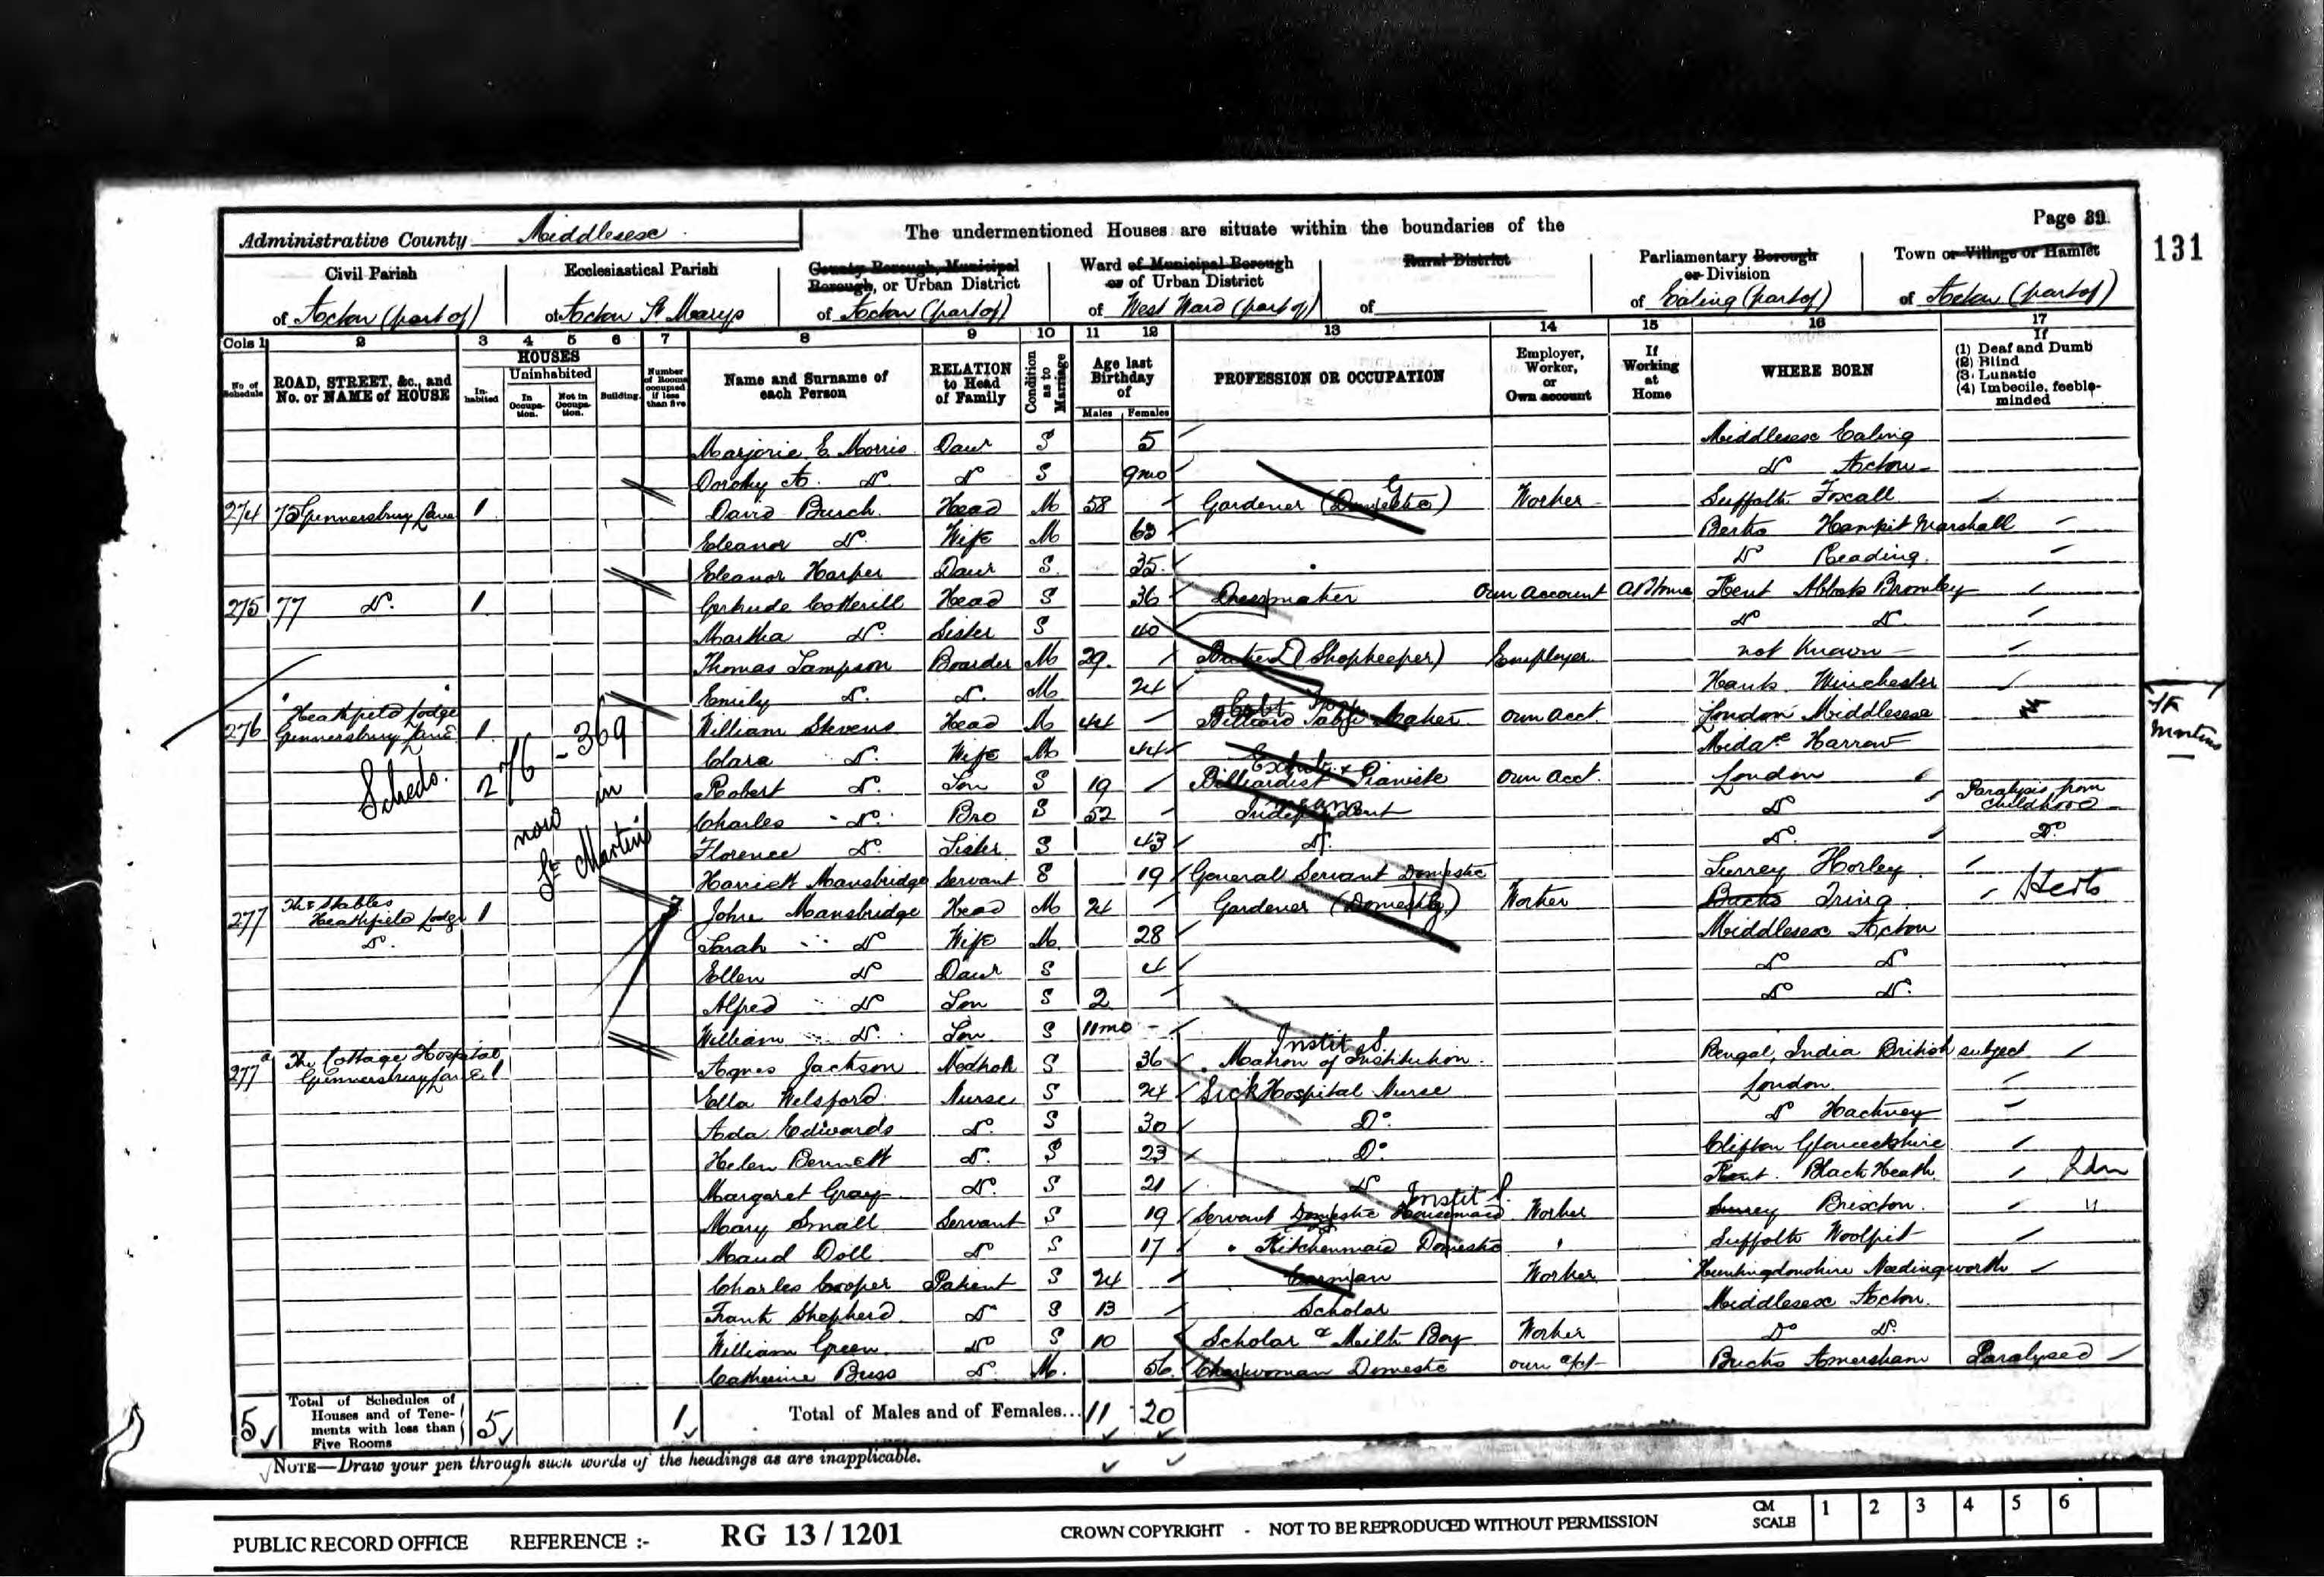 Page 39
131
Administrative County Middlesex
The undermentioned Houses are situate within the boundaries of the
Civil Parish
of Acton (part of)
Ecclesiastical Parish
of Acton St Marys
County Borough, Municipal
Borough, or Urban District
of Acton (part of)
Ward of Municipal Borough
or of Urban District
of West Ward (part of)
Rural District
of
Parliamentary Borough
or Division
of Ealing (part of)
Town or Village or Hamlet
of Acton (part of)
Cols 1 2 3 4 5 6 7 8 9 10 11 12 13 14 15 16 17
No. of Schedule
ROAD, STREET, &c., and No. or NAME of HOUSE
HOUSES
In-habited
Uninhabited
In Occupa-tion.
Not in Occupa-tion.
Building.
Number of Rooms occupied if less than five
Name and Surname of each Person
RELATION to Head of Family
Condition as to Marriage
Age last Birthday of
Males Females
PROFESSION OR OCCUPATION
Employer, Worker, or Own account
If Working at Home
WHERE BORN
If
(1) Deaf and Dumb
(2) Blind
(3) Lunatic
(4) Imbecile, feeble-minded
Marjorie E. Morris Daur S 5 Middlesex Ealing
Dorothy A. Do Do S 9mo Do Acton
274 73 Gunnersbury Lane 1 David Burch Head M 58 Gardener (Domestic) G Worker Suffolk Foxall
Eleanor Do Wife M 63 Berks Hampit Marshall
Eleanor Harper Daur S 35 Do Reading
275 77 Do 1 Gertrude Cotterill Head S 36 Dressmaker Own account At Home Kent Abbots Bromley
Martha Do Sister S 40 Do Do
Thomas Sampson Boarder M 29 (Shopkeeper) Employer not Known
Emily Do Do M 24 Hants Winchester
276 Heathfield Lodge Gunnersbury Lane 1 William Stevens Head M 44 Billiard Table Maker own acct. London Middlesex
St Martins
Clara Do Wife M 44 Midx Harrow
Robert Do Son S 19 Billiardist & Pianist own acct. London
Charles Do Bro S 52 Independent means Do Paralysis from childhood
Florence Do Sister S 43 Do Do Do
Scheds. 276 - 369 now in St Martins
Harriett Mansbridge Servant S 19 General Servant Domestic Surrey Horley
277 The Stables Heathfield Lodge 1 John Mansbridge Head M 24 Gardener (Domestic) Worker Bucks Tring Herts
Do Sarah Do Wife M 28 Middlesex Acton
Ellen Do Daur S 4 Do Do
Alfred Do Son S 2 Do Do
William Do Son S 11mo
277a The Cottage Hospital Gunnersbury Lane 1 Agnes Jackson S 36 Matron of Institution Instit S. Bengal, India British subject
Ella Welsford Nurse S 24 Sick Hospital Nurse London
Ada Edwards Do S 30 Do Do Hackney
Helen Bennett Do S 23 Do Clifton Gloucestshire
Margaret Gray Do S 21 Do Kent Black Heath Ldn
Mary Small Servant S 19 Servant Domestic Housemaid Instit S. Worker Surrey Brixton "
Maud Doll Do S 17 Kitchenmaid Domestic Suffolk Woolpit
Charles Cooper Patient S 24 Carman Worker Huntingdonshire Needingworth
Frank Shepherd Do S 13 Scholar Middlesex Acton
William Green Do S 10 Scholar & Milk Boy Worker Do Do
Catherine Buss Do M 56 Charwoman Domestic own a/c Bucks Amersham Paralysed
5 Total of Schedules of Houses and of Tenements with less than Five Rooms 5 1 Total of Males and of Females... 11 20
NOTE—Draw your pen through such words of the headings as are inapplicable.
PUBLIC RECORD OFFICE REFERENCE :- RG 13 / 1201 CROWN COPYRIGHT - NOT TO BE REPRODUCED WITHOUT PERMISSION CM SCALE 1 2 3 4 5 6